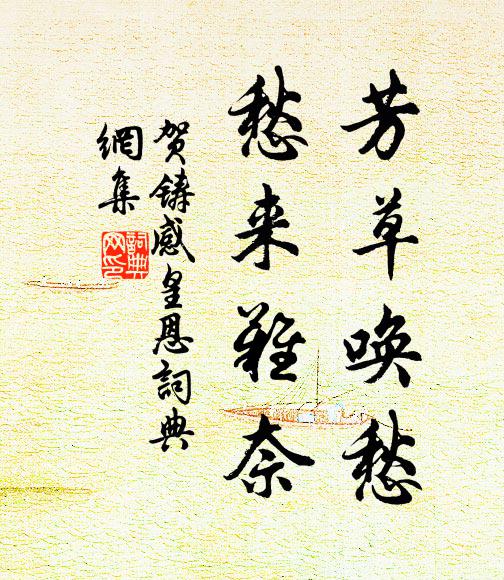 芳草唤愁
愁来難奈
贺铸感皇恩詞典
網集
詞典
网印